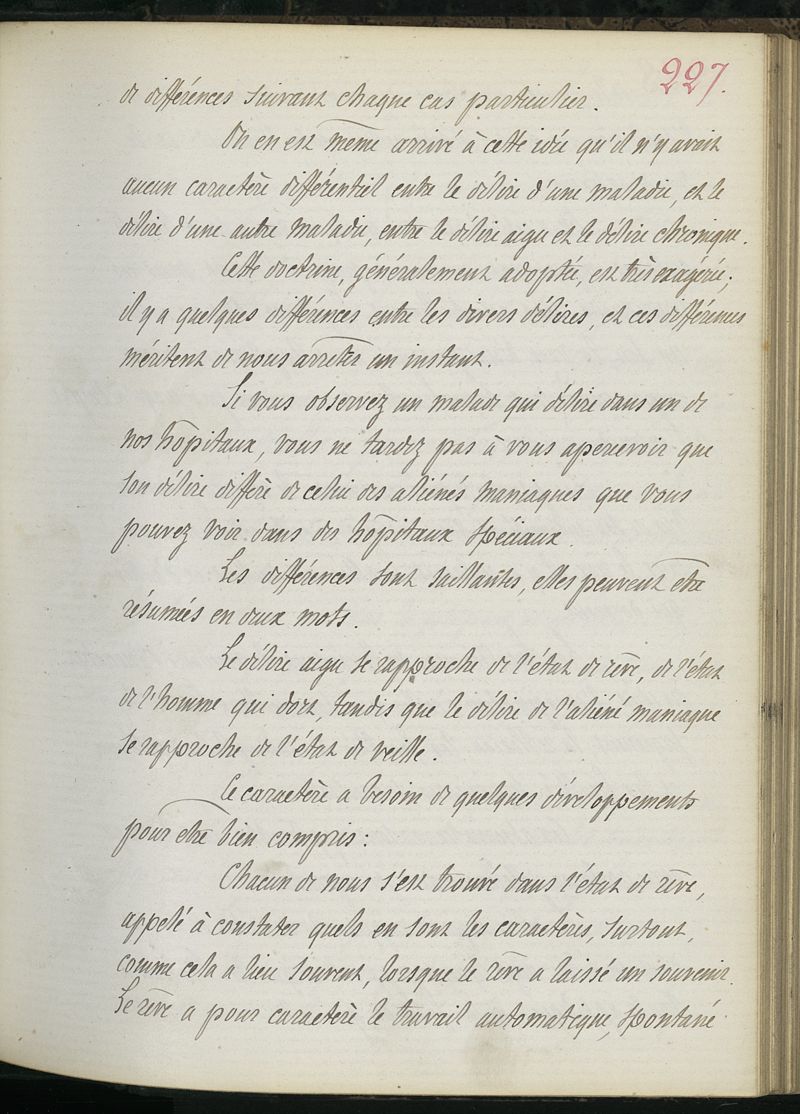 227.
de différences suivant chaque cas particulier.
On en est même arrivé à cette idée qu'il n'y avait
aucun caractère différentiel entre le délire d'une maladie, et le
délire d'une autre maladie, entre le délire aigu et le délire chronique.
Cette doctrine, généralement adoptée, est très exagérée;
il y a quelques différences entre les divers délires, et ces différences
méritent de nous arrêter un instant.
Si vous observez un malade qui délire dans un de
nos hôpitaux, vous ne tardez pas à vous apercevoir que
son délire diffère de celui des aliénés maniaques que vous
pouvez voir dans des hôpitaux spéciaux.
Les différences sont saillantes, elles peuvent être
résumées en deux mots.
Le délire aigu se rapproche de l'état de rêve, de l'état
de l'homme qui dort, tandis que le délire de l'aliéné maniaque
se rapproche de l'état de veille.
Ce caractère a besoin de quelques développements
pour être bien compris:
Chacun de nous s'est trouvé dans l'état de rêve,
appelé à constater quels en sont les caractères, surtout,
comme cela a lieu souvent, lorsque le rêve a laissé un souvenir.
Le rêve a pour caractère le travail automatique, spontané